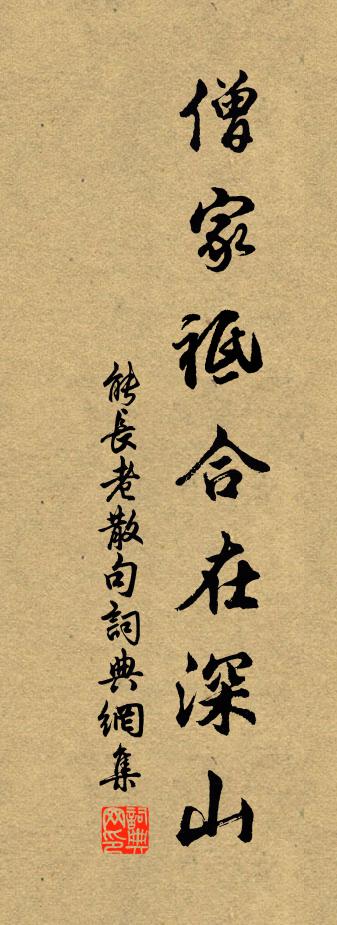 僧家祗合在深山
能長老散句詞典網集
詞典网印